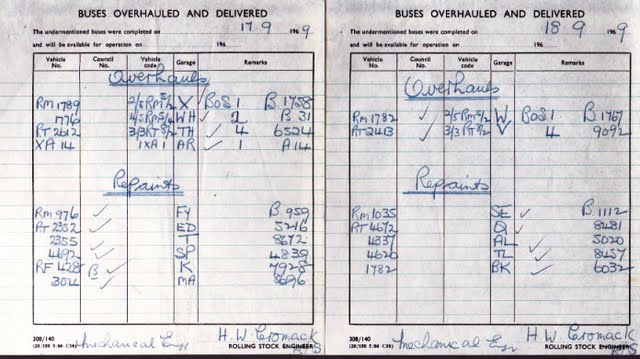 BUSES OVERHAULED AND DELIVERED
The undermentioned buses were completed on 17.9 1969
and will be available for operation on 196
Vehicle No. Council No. Vehicle code Garage Remarks
Overhauls
RM 1789 X BOS 1 B.1758
1776 WH 1 B 31
RT 2612 TH 4 6524
XA 14 1XA1 AR 1 A14
Repaints
RM 976 FY B.959
RT 2352 ED 5216
2355 T 8672
4692 SP 4839
RF 428 B K 7928
304 MA 8696
308/140
Mechanical Engr H.W. Cromack
ROLLING STOCK ENGINEER
BUSES OVERHAULED AND DELIVERED
The undermentioned buses were completed on 18.9 1969
and will be available for operation on 196
Vehicle No. Council No. Vehicle code Garage Remarks
Overhauls
RM 1782 W BOS 1 B.1767
RT 2413 V 4 9092
Repaints
RM 1035 SE B.1112
RT 4672 Q 8481
4337 AL 5020
4620 TL 8457
1782 BK 6032
308/140
Mechanical Engr H.W. Cromack
ROLLING STOCK ENGINEER